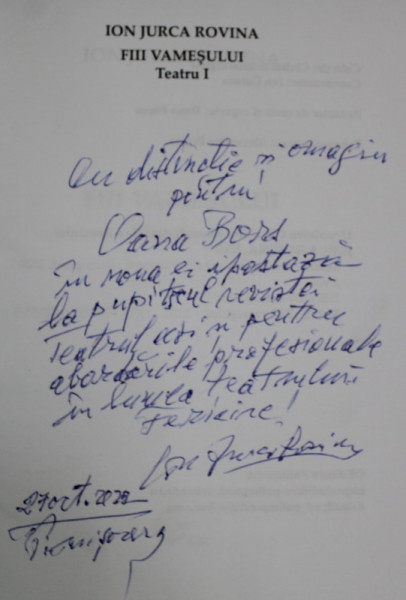 ION JURCA ROVINA
FIII VAMEȘULUI
Teatru I
Cu distincție și omagiu
pentru
Oana Borș
în noua ei ipostază
la pupitrul revistei
Teatrul azi și pentru
abordările profesionale
în lumea teatrului
Fericire!
Ion Jurca Rovina
27 oct.
Timișoara